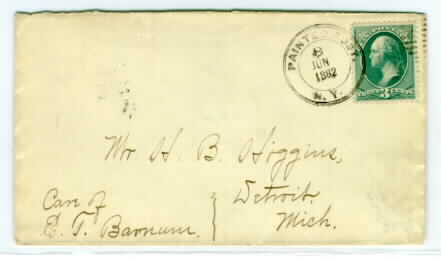 PAINTED POST.
8
JUN
1882
N.Y.
3
Mr H. B. Higgins,
Detroit.
Mich.
Care of
E. T. Barnum.